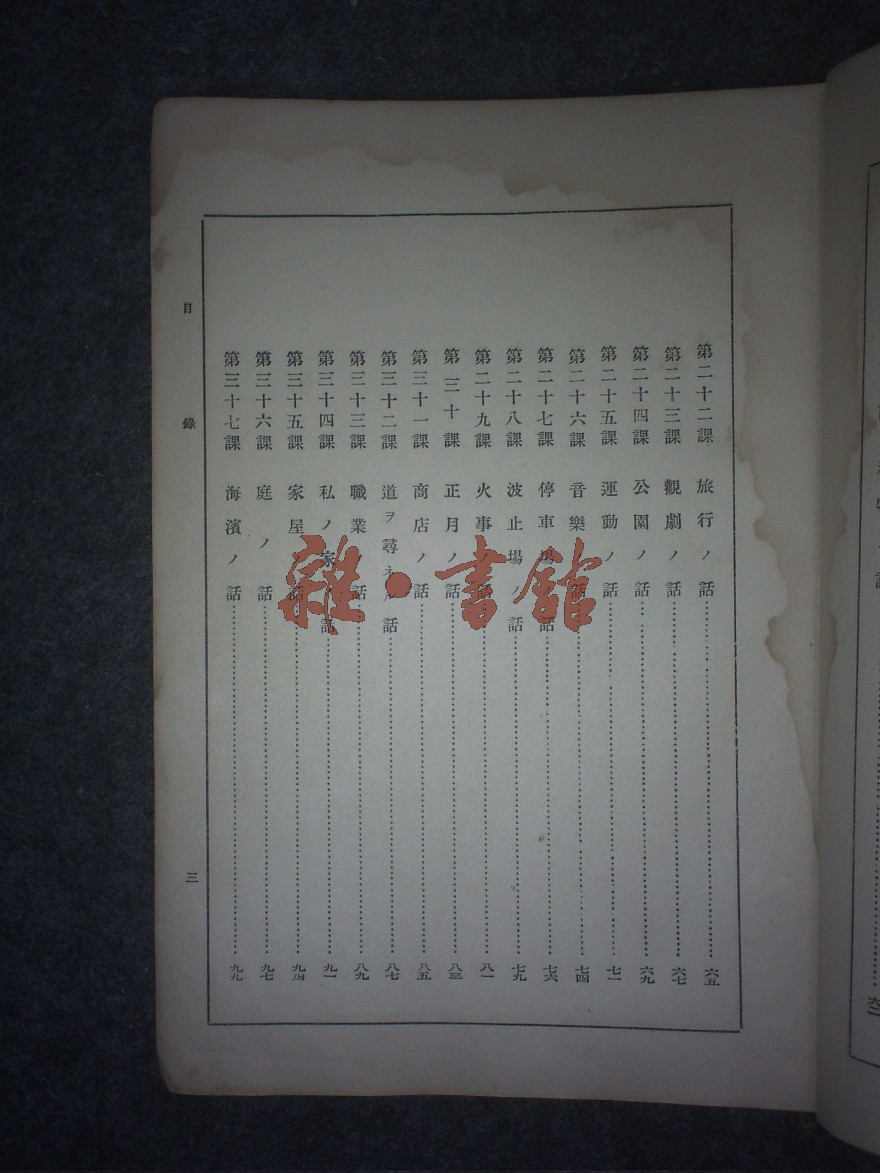 第二十二課 旅行ノ話……六五
第二十三課 觀劇ノ話……六七
第二十四課 公園ノ話……六九
第二十五課 運動ノ話……七一
第二十六課 音樂ノ話……七四
第二十七課 停車場ノ話……七六
第二十八課 波止場ノ話……七九
第二十九課 火事ノ話……八一
第三十課 正月ノ話……八三
第三十一課 商店ノ話……八五
第三十二課 道ヲ尋ネル話……八七
第三十三課 職業ノ話……八九
第三十四課 私ノ家ノ話……九一
第三十五課 家屋ノ話……九四
第三十六課 庭ノ話……九七
第三十七課 海濱ノ話……九九
目錄 三
雜·書館